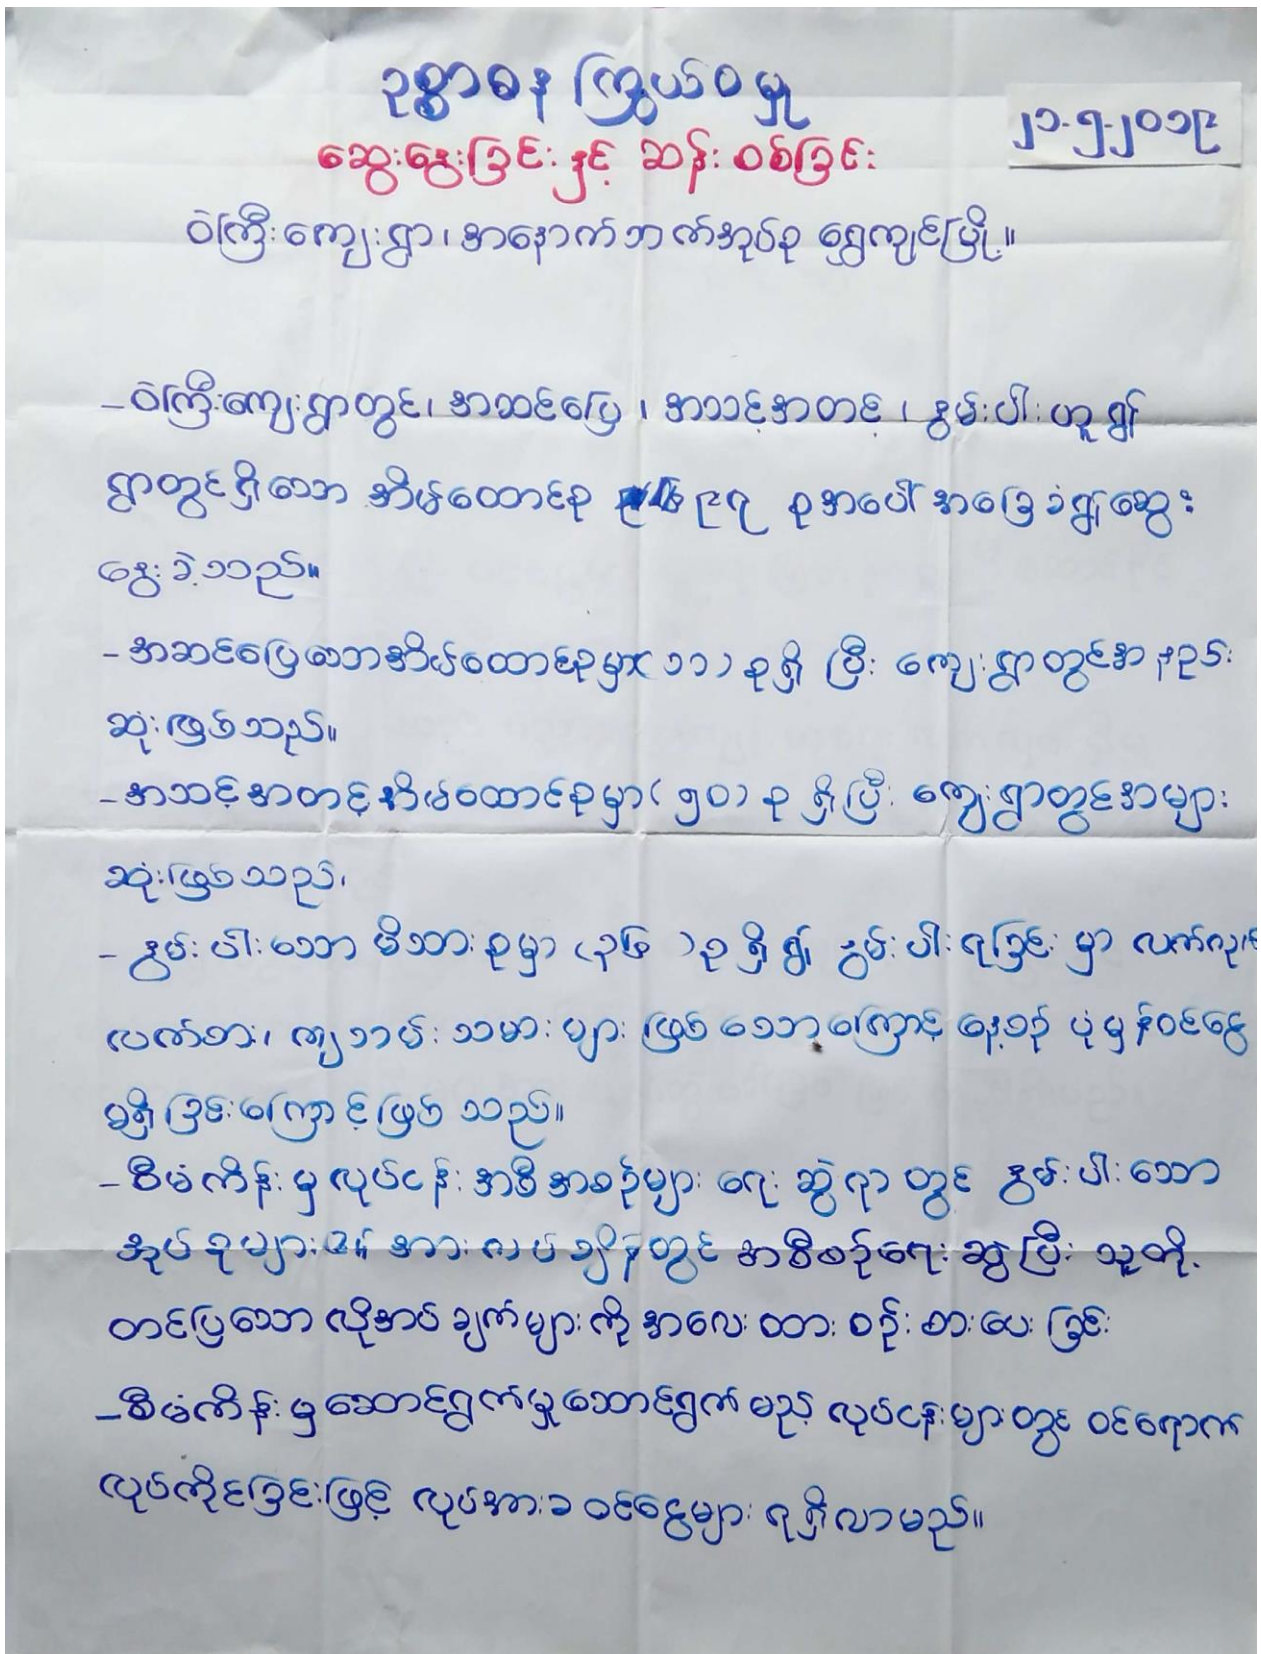 ဥစ္စာဓန ကြွယ်ဝမှု
၂၁.၅.၂၀၁၉
ဆွေးနွေးခြင်းနှင့် ဆန်းစစ်ခြင်း
ဝဲကြီးကျေးရွာ၊ အနောက်ဘက်အုပ်စု ရွှေကျင်မြို့။
- ဝဲကြီးကျေးရွာတွင်၊ အဆင်ပြေ၊ အသင့်အတင့်၊ နွမ်းပါးဟူ၍
ရွာတွင်ရှိသော အိမ်ထောင်စု ၉၇ စုအပေါ် အခြေခံ၍ဆွေး
နွေးခဲ့သည်။
- အဆင်ပြေသောအိမ်ထောင်စုမှာ (၁၁) စုရှိပြီး ကျေးရွာတွင်အနည်း
ဆုံးဖြစ်သည်။
- အသင့်အတင့်အိမ်ထောင်စုမှာ (၅၀) စုရှိပြီး ကျေးရွာတွင်အများ
ဆုံးဖြစ်သည်၊
- နွမ်းပါးသော မိသားစုမှာ (၃၆) စုရှိ၍ နွမ်းပါးရခြင်းမှာ လက်လုပ်
လက်စား၊ ကျဘမ်းသမားများ ဖြစ်သောကြောင့် နေ့စဉ် ပုံမှန်ဝင်ငွေ
မရှိခြင်းကြောင့်ဖြစ်သည်။
- စီမံကိန်းမှလုပ်ငန်းအစီအစဉ်များ ရေးဆွဲရာတွင် နွမ်းပါးသော
အုပ်စုများ၏ အားလပ်ချိန်တွင် အစီစဉ်ရေးဆွဲပြီး သူတို့
တင်ပြသော လိုအပ်ချက်များကို အလေးထားစဉ်းစားပေးခြင်း
- စီမံကိန်းမှဆောင်ရွက်မှုသောင်ရွက်မည့် လုပ်ငန်းများတွင် ဝင်ရောက်
လုပ်ကိုင်ခြင်းဖြင့် လုပ်အားခ ဝင်ငွေများ ရရှိလာမည်။